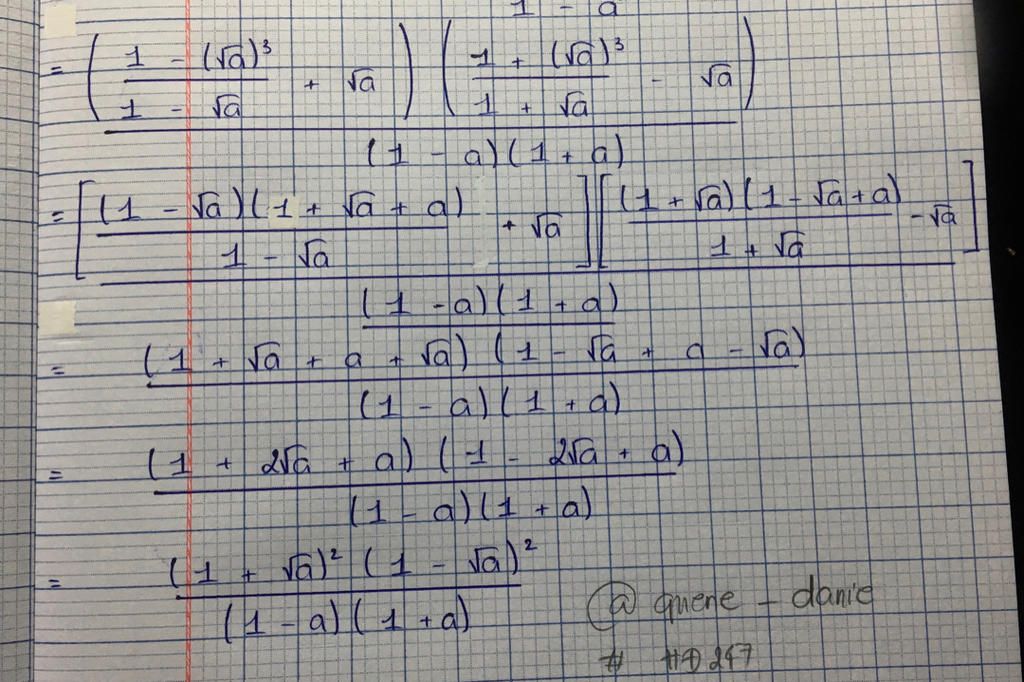 1 - a
= ( (1 - (√a)³)/(1 - √a) + √a ) ( (1 + (√a)³)/(1 + √a) - √a )
(1 - a)(1 + a)
= [ ((1 - √a)(1 + √a + a))/(1 - √a) + √a ] [ ((1 + √a)(1 - √a + a))/(1 + √a) - √a ]
(1 - a)(1 + a)
= (1 + √a + a + √a) (1 - √a + a - √a)
(1 - a)(1 + a)
= (1 + 2√a + a) (1 - 2√a + a)
(1 - a)(1 + a)
= (1 + √a)² (1 - √a)²
(1 - a)(1 + a)
@ quene - danie